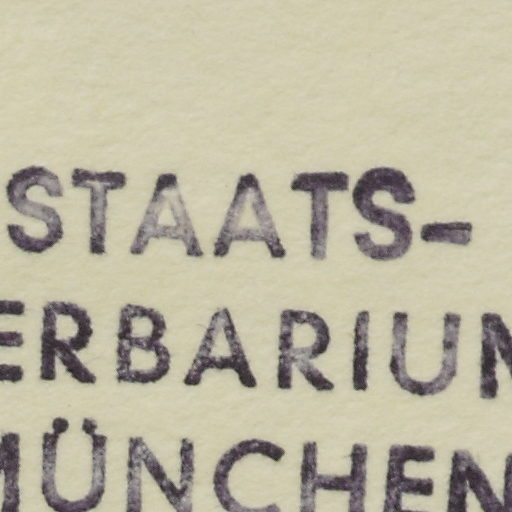 STAATS-
ERBARIUM
MÜNCHEN